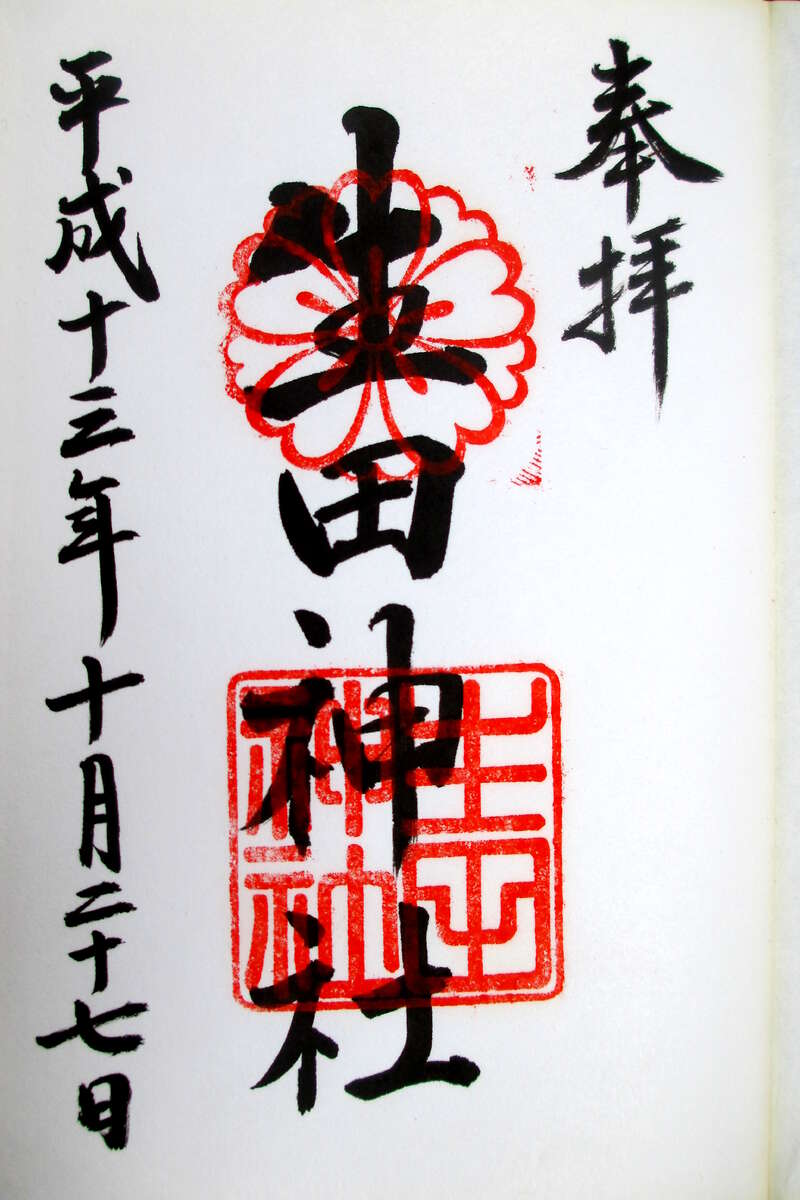 奉拝
生田神社
生田
神社
平成十三年十月二十七日